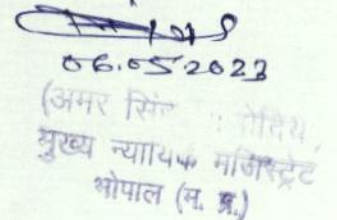 06.05.2023
(अमर सिंह
मुख्य न्यायिक मजिस्ट्रेट
भोपाल (म. प्र.)